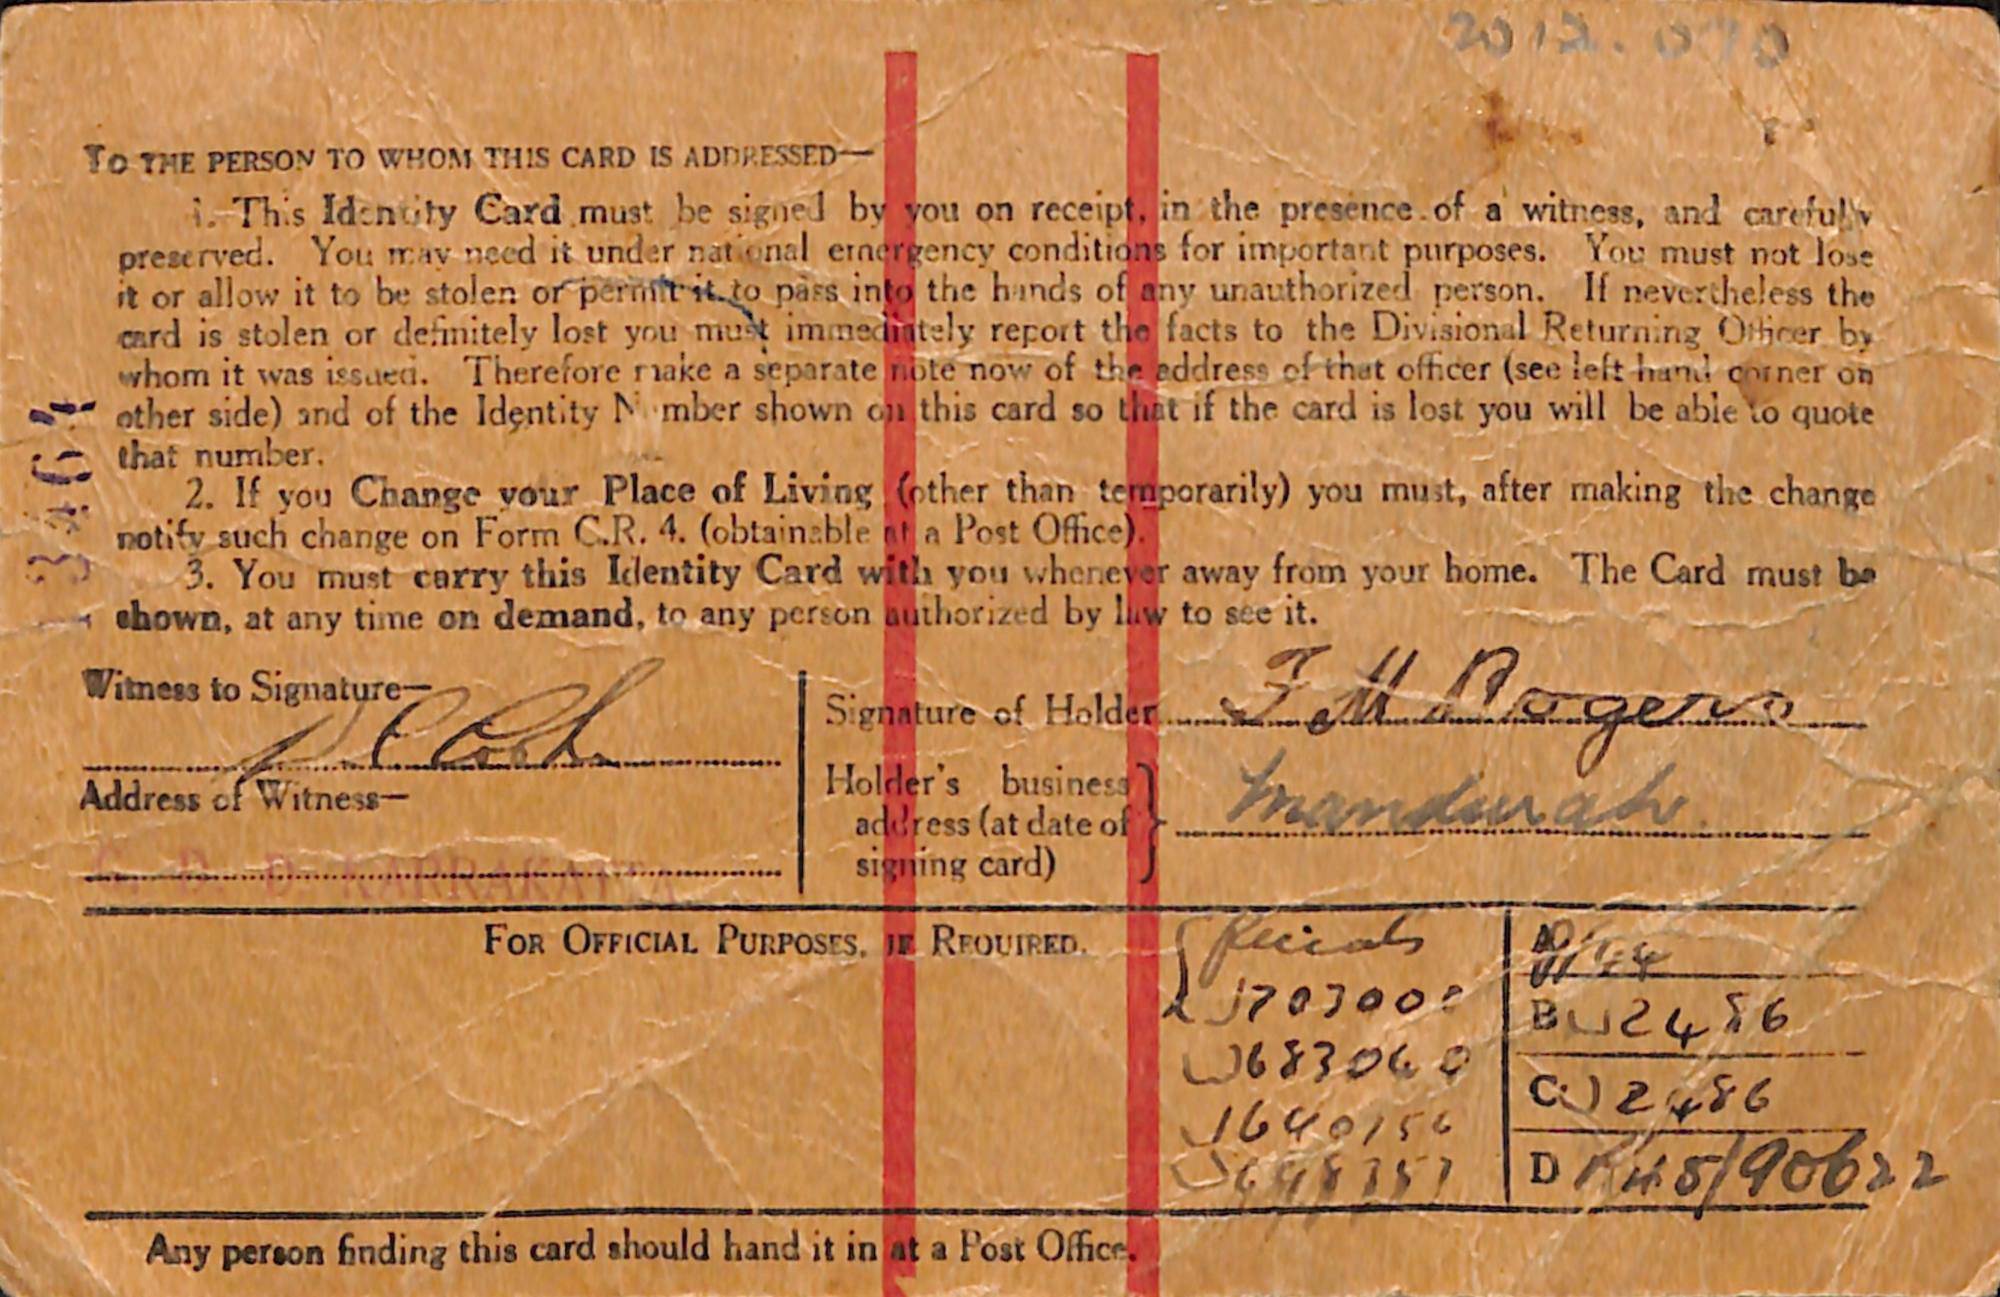 2012.070
TO THE PERSON TO WHOM THIS CARD IS ADDRESSED—
1. This Identity Card must be signed by you on receipt, in the presence of a witness, and carefully
preserved. You may need it under national emergency conditions for important purposes. You must not lose
it or allow it to be stolen or permit it to pass into the hands of any unauthorized person. If nevertheless the
card is stolen or definitely lost you must immediately report the facts to the Divisional Returning Officer by
whom it was issued. Therefore make a separate note now of the address of that officer (see left hand corner on
other side) and of the Identity Number shown on this card so that if the card is lost you will be able to quote
that number.
2. If you Change your Place of Living (other than temporarily) you must, after making the change
notify such change on Form C.R. 4. (obtainable at a Post Office).
3. You must carry this Identity Card with you whenever away from your home. The Card must be
shown, at any time on demand, to any person authorized by law to see it.
Witness to Signature—
Signature of Holder F M Rogers
Address of Witness—
Holder's business
address (at date of
signing card)
Mandurah
KARRAKATTA
FOR OFFICIAL PURPOSES, IF REQUIRED.
A
B W2486
C W2486
D 45/90622
Any person finding this card should hand it in at a Post Office.